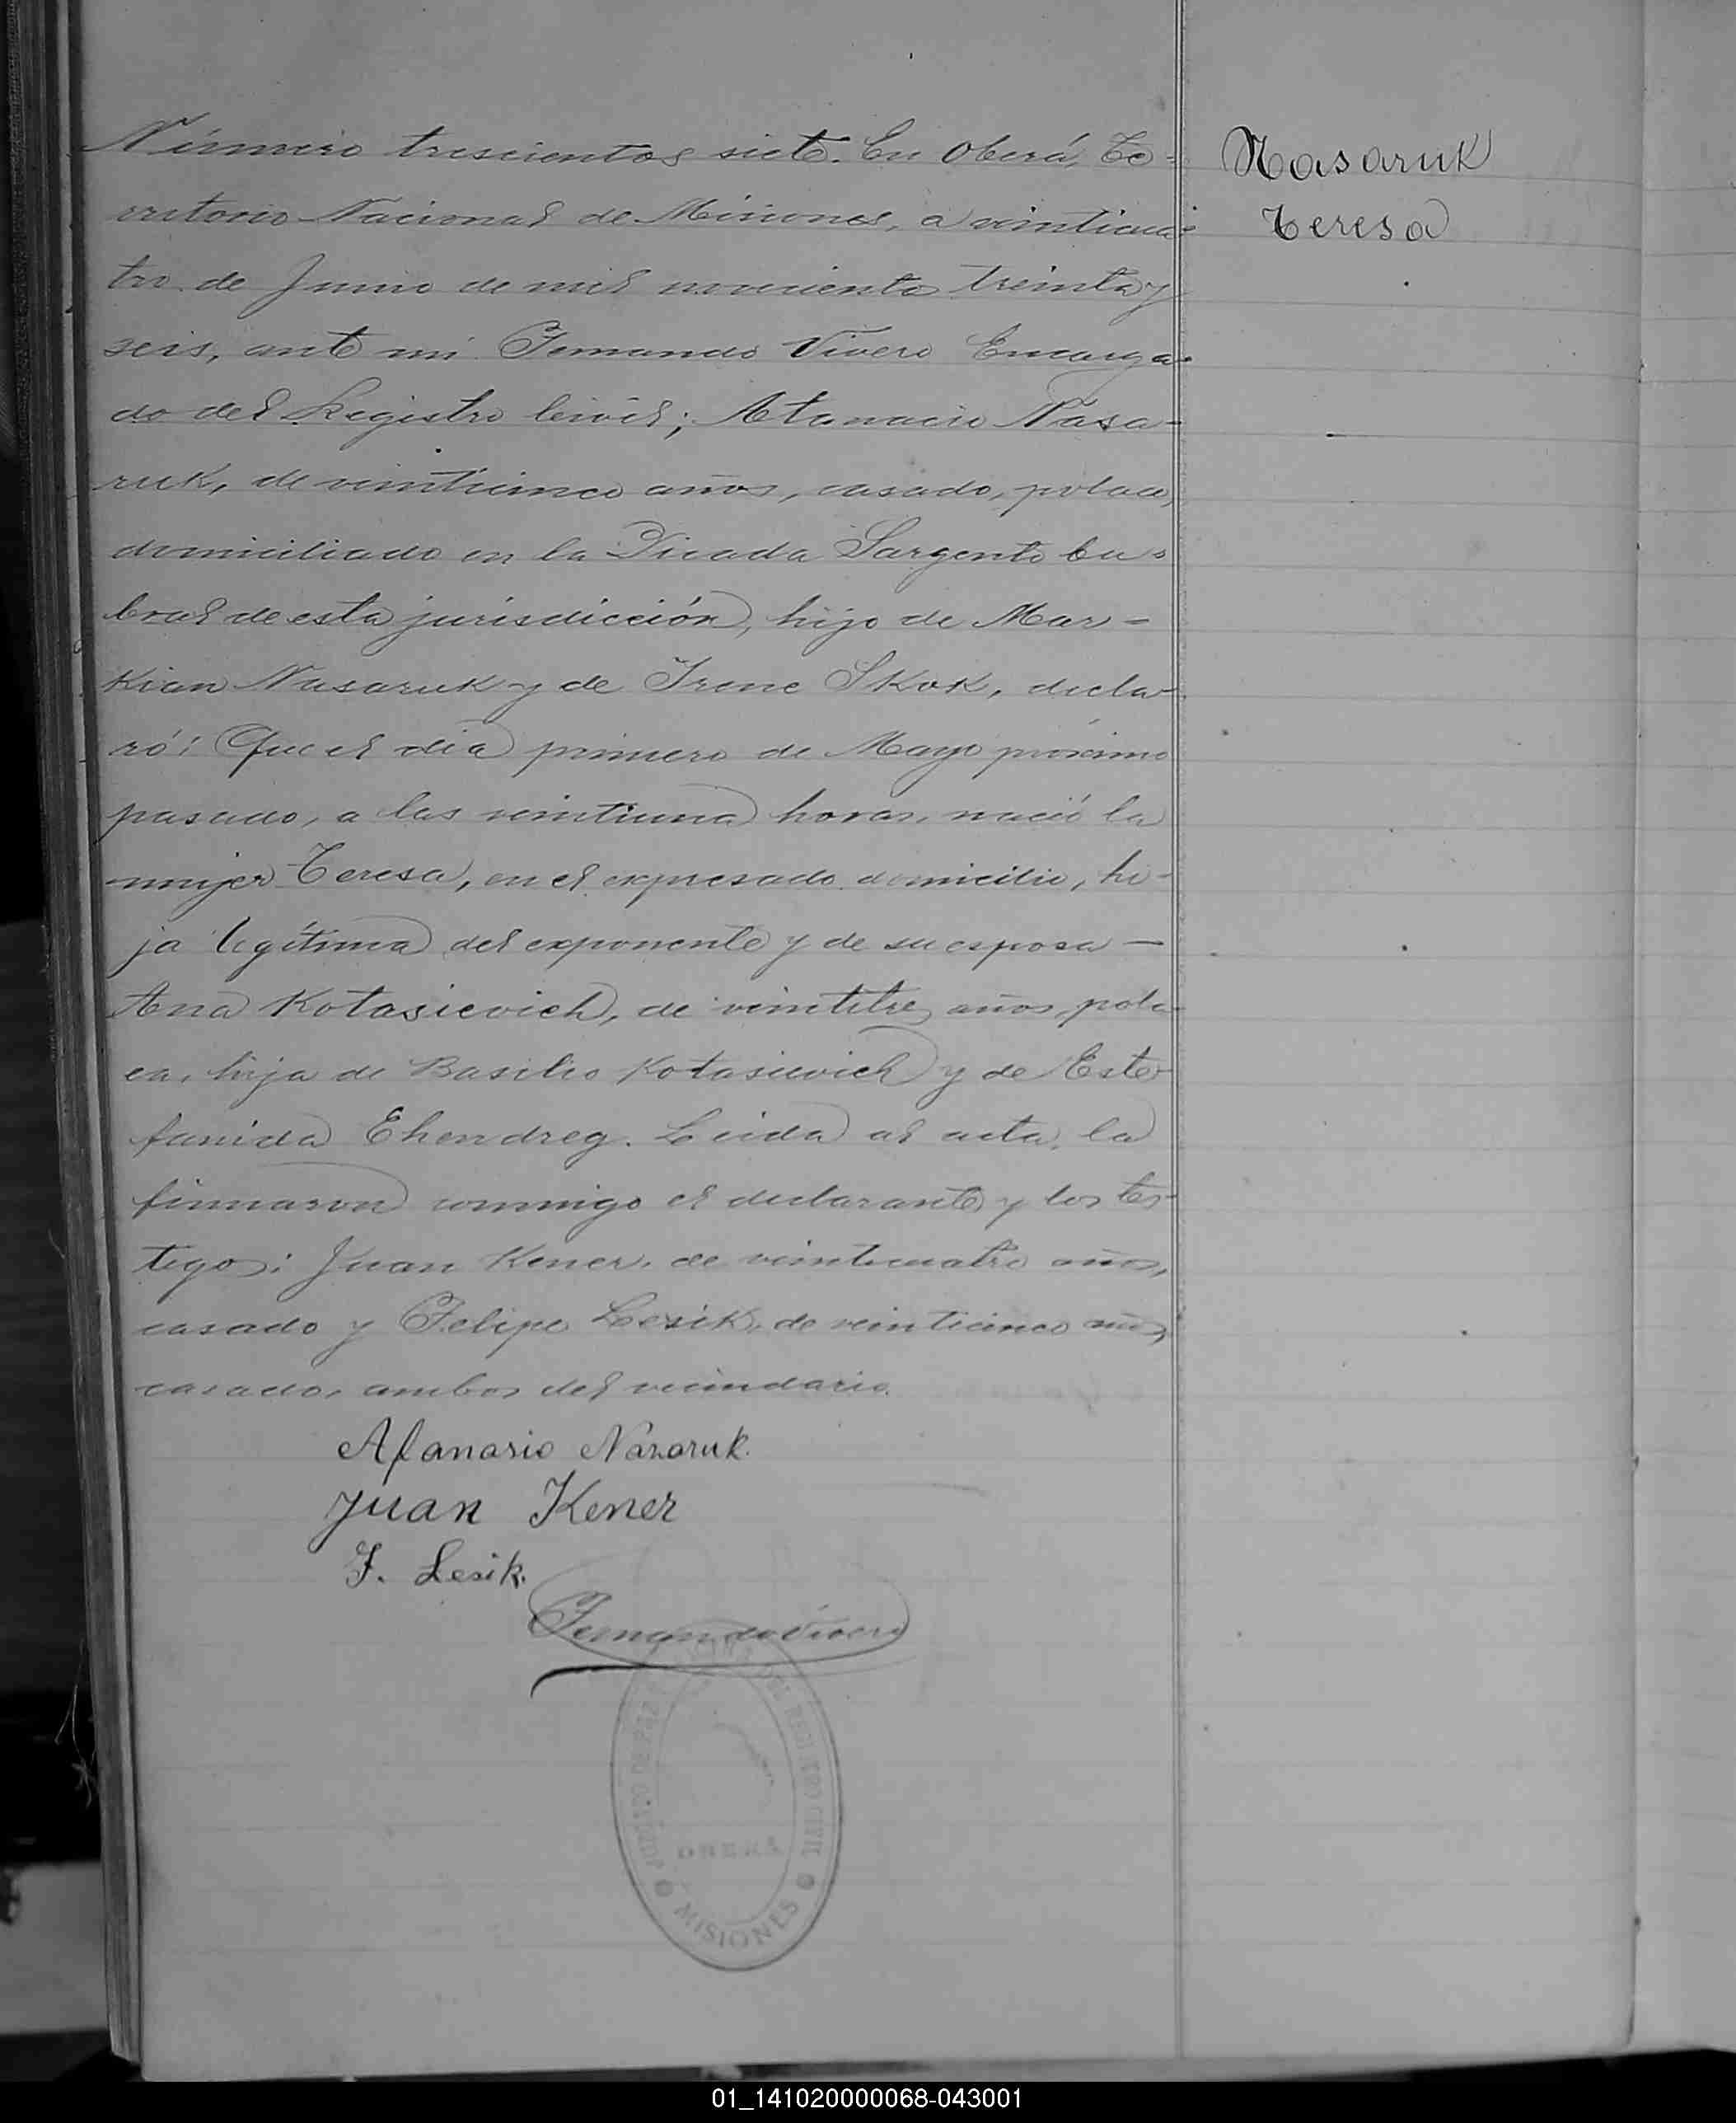 Número trescientos siete. En Oberá, Te=
rritorio Nacional de Misiones, a veinticua=
tro de Junio de mil novecientos treinta y
seis, ante mi Fernando Vivero Encarga=
do del Registro Civil; Atanacio Nasa=
ruk, de veinticinco años, casado, polaco,
domiciliado en la Picada Sargento Ca=
bral de esta jurisdicción, hijo de Mar=
kian Nasaruk y de Irene Skok, decla=
ró: Que el día primero de Mayo próximo
pasado, a las veintiuna horas, nació la
mujer Teresa, en el expresado domicilio, hi=
ja legítima del exponente y de su esposa —
Ana Kotasievich, de veintitres años, pola=
ca, hija de Basilio Kotasievich y de Este=
fanida Ehendreg. Leida el acta, la
firmaron conmigo el declarante y los tes=
tigos: Juan Kener, de veinticuatro años,
casado y Felipe Lesik, de veinticinco años,
casado, ambos del vecindario.
Afanasio Nazaruk.
Juan Kener
F. Lesik.
Fernando Vivero
DEL REGISTRO CIVIL
JUZGADO DE PAZ
OBERÁ
MISIONES
Nasaruk
Teresa
01_141020000068-043001